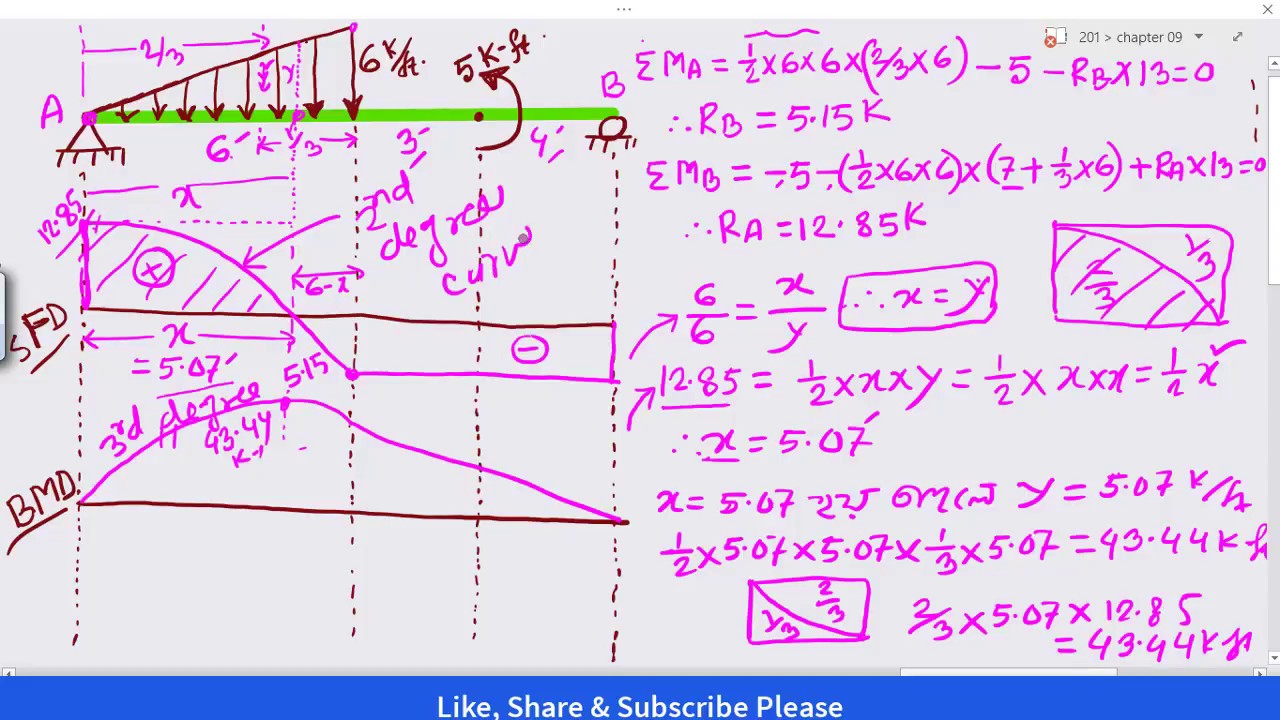 201 > chapter 09
2/3
6 K/ft.
5 K-ft
A
B
y
6′
1/3
3′
4′
x
12.85
+
2nd
degree
curv
6-x
SFD
x
= 5.07′
5.15
−
3rd degree
43.44
K-'
BMD
ΣMA = 1/2×6×6×(2/3×6) − 5 − RB×13=0
∴RB = 5.15K
ΣMB = −5−(1/2×6×6)×(7+1/3×6)+RA×13=0
∴RA =12.85K
1/3
2/3
6/6 = x/y
∴x = y
12.85 = 1/2×x×y = 1/2×x×x = 1/2 x
∴x = 5.07′
x= 5.07 y = 5.07 K/ft
1/2×5.07×5.07×1/3×5.07 =43.44K ft
2/3
1/3
2/3×5.07×12.85
=43.44K ft
Like, Share & Subscribe Please